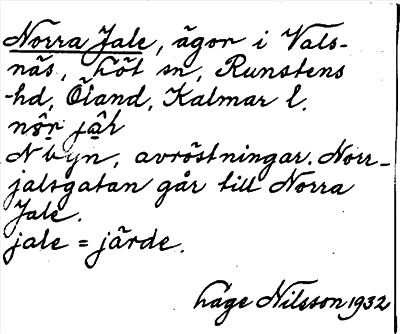 Norra Jale, ägor i Vals-
näs, Köt sn, Runstens
hd, Öland, Kalmar l.
N byn, avröstningar. Norr-
jalsgatan går till Norra
Jale.
jale = järde.
håge Nilsson 1932